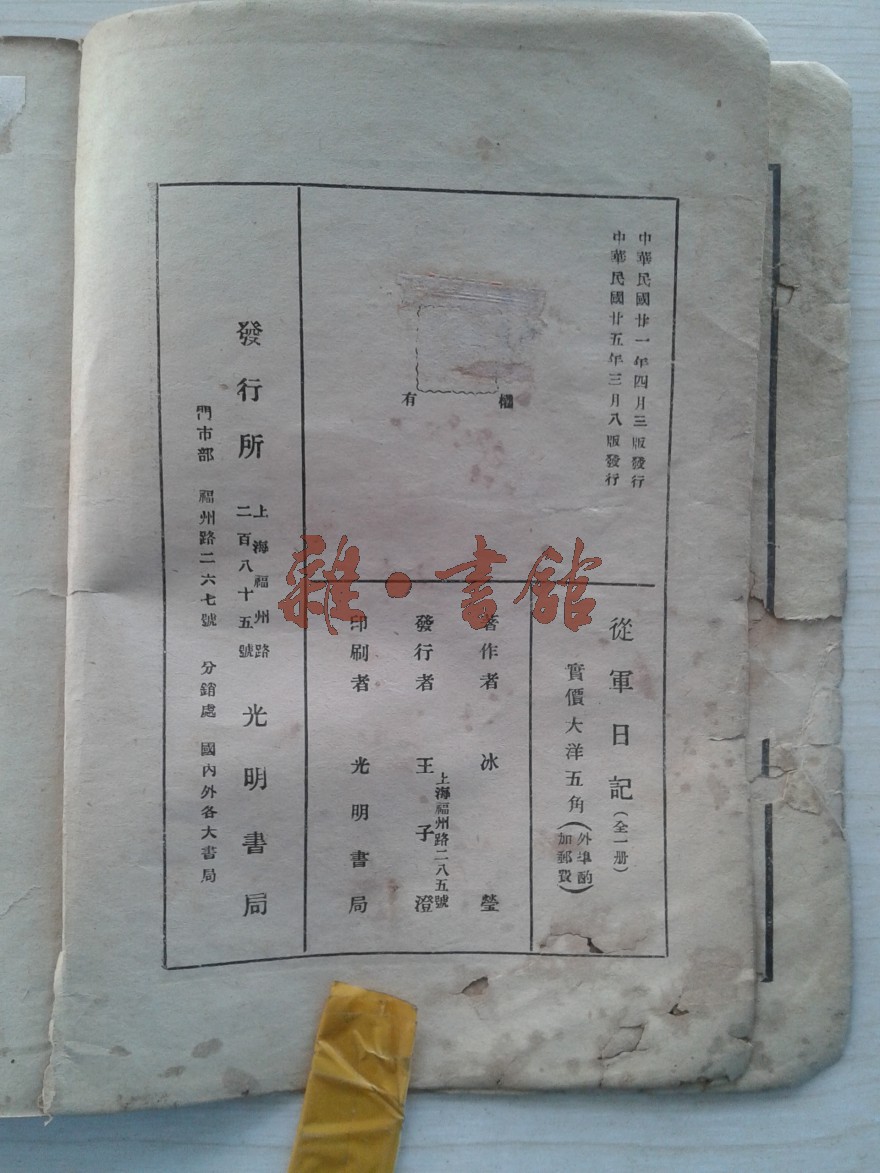 中華民國廿一年四月三版發行
中華民國廿五年三月八版發行
有 權
從軍日記(全一册)
實價大洋五角(外埠酌加郵費)
著作者 冰瑩
上海福州路二八五號
發行者 王子澄
印刷者 光明書局
發行所 上海福州路二百八十五號 光明書局
門市部 福州路二六七號 分銷處 國內外各大書局
雜·書館